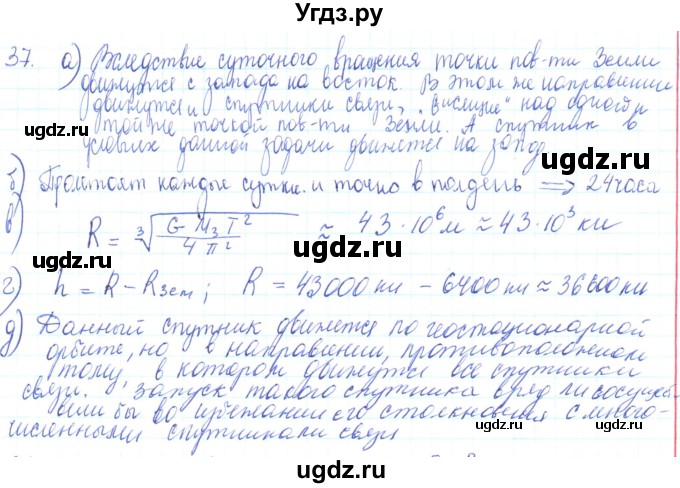 Угдз.ру
37. а) Вследствие суточного вращения точки пов-ти Земли
движутся с запада на восток. В этом же направлении
движутся и спутники связи, „висящие" над одной и
той же точкой пов-ти Земли. А спутник в
условиях данной задачи движется на запад
uгдз.ru
uгдз.ru
б) Пролетает каждые сутки и точно в полдень ⟹ 24 часа
uгдз.ru
в) R = ∛(G M₃ T² / 4π²) ≈ 43·10⁶ м ≈ 43·10³ км
uгдз.ru
г) h = R – Rзем; R = 43000 км – 6400 км ≈ 36600 км
д) Данный спутник движется по геостационарной
орбите, но в направлении, противоположном
тому, в котором движутся все спутники
связи. Запуск такого спутника вряд ли
бы во избежании его столкновения с много-
численными спутниками связи
uгдз.ru
uгдз.ru